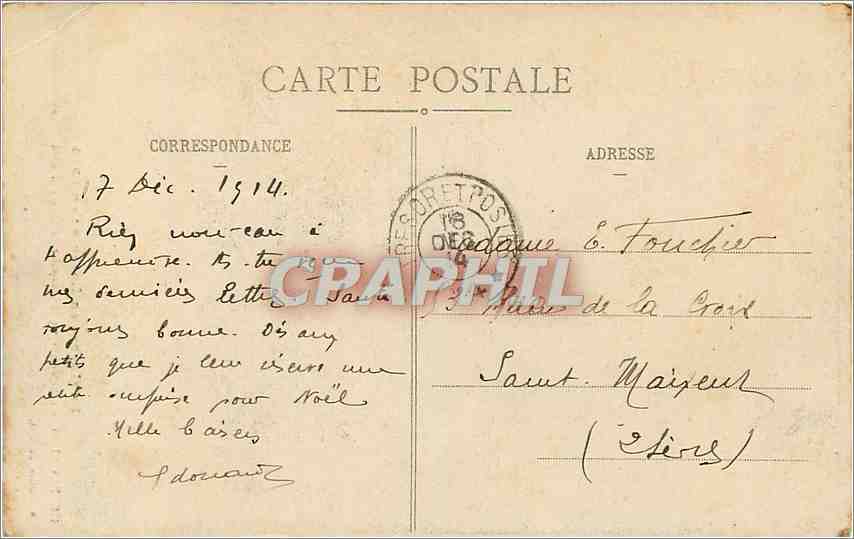 CARTE POSTALE
CORRESPONDANCE
17 Déc. 1914.
Rien nouveau à
t'apprendre. As-tu reçu
mes dernières lettres. Santé
toujours bonne. Dis aux
petits que je leur réserve une
petite surprise pour Noël
Mille baisers
Edouard
ADRESSE
TRESOR ET POSTES
18
DEC
14
Madame E. Fouchier
Rue de la Croix
Saint-Maixent
(2 Sèvres)
CPAPHIL